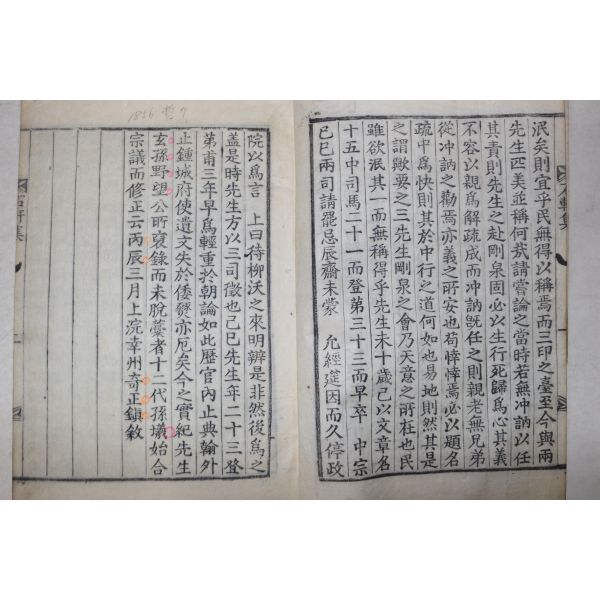 泯矣則宜乎民無得以稱焉而三印之臺至今與兩
先生匹美並稱何㢤請嘗論之當時若無冲訥以任
其責則先生之赴剛泉固必以生行死歸爲心其義
不容以親爲解疏成而冲訥旣任之則親老無兄弟
從冲訥之勸焉亦義之所安也苟悻悻焉必以題名
疏中爲快則其於中行之道何如也易地則然其是
之謂歟要之三先生剛泉之會乃天意之所在也民
雖欲泯其一而無稱得乎先生未十歲已以文章名
十五中司馬二十一而登第三十三而早卒 中宗
己巳兩司請罷忌辰齋未蒙 允經筵因而久停政
院以爲言 上曰待柳沃之來明辨是非然後爲之
盖是時先生方以三司徵也己巳先生年二十三登
第甫三年早爲輕重於朝論如此歷官內止典翰外
止鍾城府使遺文失於倭燹亦厄矣今之實紀先生
玄孫野望公所裒錄而未脫藁者十二代孫㙯始合
宗議而修正云丙辰三月上浣幸州奇正鎭敘
石軒集
1856 哲7